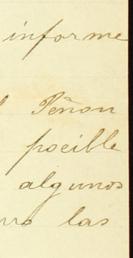 informe
Peñon
poeible
algunos
las